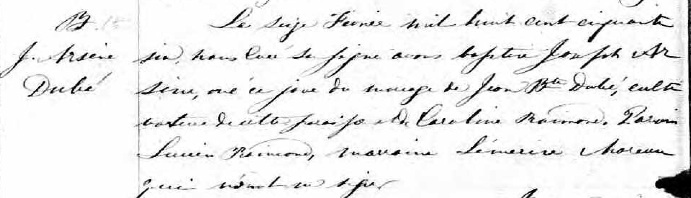 B
J. Arsène
Dubé
Le seize Fevrié mil huit cent cinquante
six, nous Curé soussigné avons baptisé Joseph Ar
sène, né ce jour du mariage de Jean Bte Dubé, culti
vateur de cette paroisse et de Caroline Raimond. Parrain
Lucien Raimond, marraine Lémerise Moreau
qui n'ont su signer